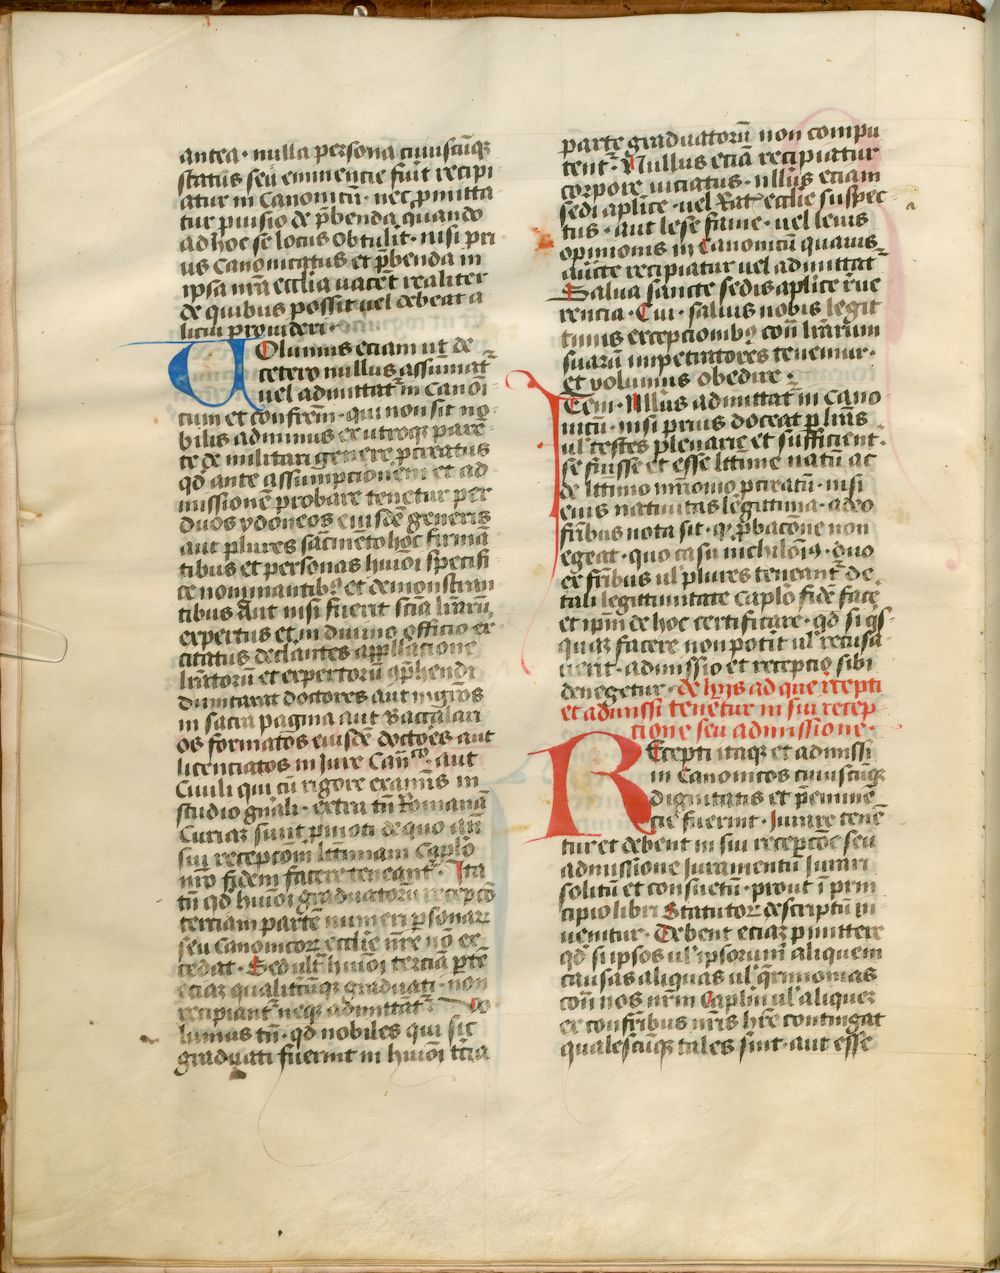 antea · nulla persona cuiuscūqꝫ
status seu eminencie fūit recipi
atur in Canonicū · nec ꝑmitta
tur ꝓuisio de p̄benda quando
ad hoc se locus obtulit · nisi pri
us Canonicatus et p̄benda in
ipsa nr̄a ecclīa vacēt realiter
de quibus possit uel debeat a
licui prouideri ·
Uolumus eciam ut de
cetero nullus assūmat᷑
uel admittat᷑ in Canōi
cum et confrēm · qui non sit no
bilis ad minus ex utroqꝫ pare
te de militari genere ꝓcreatus
qd̄ ante assumpcionem et ad
missionē probare tenetur per
duos ydoneos eiusdē generis
aut plures sac̄mēto hoc firmā
tibus et personas huiōi specifi
ce nominantibꝰ et demonstran
tibus Aut nisi fuerit scīa lr̄arū
expertus et in diuino officio ex
citatus declantes appellacione
lr̄atorū et expertorū ꝯp̄hendi
dumtaxat doctores aut mgr̄os
in sacra pagina aut Baccalari
os formatos eiusdē doctōes aut
licenciatos in Jure Cañco aut
Ciuili qui cū rigore examīs in
studio gn̄ali · extra tn̄ Romanā
Curiaꝫ sunt ꝓmoti de quo añ
sui recepcōm ltt̄imam Caplo
nr̄o fidem facere teneant᷑ · Ita
tn̄ qd̄ huiōi graduatorū recepcō
terciam partē numeri ꝑsonaꝝ
seu Canonicoꝝ ecclīe nr̄e nō ex
cedat · Sed ult̄ huiōi tercia ꝑtē
eciaꝫ qualitc̄ūqꝫ graduati · non
recipiant᷑ neqꝫ admittat᷑ Uo
lumus tn̄ · qd̄ nobiles qui sic
graduati fuerint in huiōi tc̄ia
parte graduatorū non compu
tent᷑ · Nullus eciā recipiatur
corpore uiciatus · nllūs eciam
sedi aplīce · uel Rat᷑ ecclīe suspec
tus · aut lese fame · uel leuis
opinionis in Canonicū quauis
auc̄te recipiatur uel admittat᷑
Salua sancte sedis aplīce r̄ue
rencia · Cui · saluis nobis legit
timis excepcionibꝰ con̄ lr̄arum
suarū impetratores tenemur ·
et volumus obedire ·
Item · Nllūs admittat᷑ in Cano
nicū · nisi prius doceat ꝑ lr̄as
ul᷑ testes plenarie et sufficient᷑ ·
se fuisse et esse ltt̄ime natū ac
de ltt̄imo mr̄imonio ꝓcreatū · nisi
eius natiuitas legittima · adeo
fr̄ibus nota sit · ꝙ ꝓbacōne non
egeat · quo casu nichilōīꝰ · duo
ex fr̄ibus ul᷑ plures teneant᷑ de
tali legittimitate Caplo fidē face
et ipm̄ de hoc certificare · qd̄ si qs
quaꝫ facere non potit ul᷑ recusa
uerit · admissio et recepcio sibi
denegetur · de hijs ad que r̄cepti
et admissi tenetur in sui recep
cione seu admissione ·
Recepti itaqꝫ et admissi
in Canonicos cuiuscūqꝫ
dignitatis et p̄eminē
cie fuerint · Jurare tenē
tur et debent in sui recepcōe seu
admissione Juramentū Jurari
solitū et consuetū · prout ī prin
cipio libri Statutoꝝ descriptū in
uenitur · Debent eciaꝫ ꝓmittere
qd̄ si ipsos ul᷑ ipsorum aliquem
causas aliquas ul᷑ q̄rimonias
con̄ nos nr̄m Caplm̄ ul᷑ aliqueꝫ
ex confr̄ibus nr̄is hr̄e contingat
qualescūqꝫ tales sint · aut esse